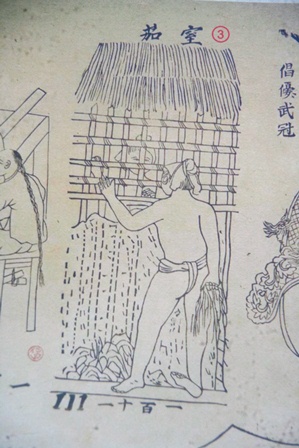 室茄
③
倡優武冠
111
一百十一